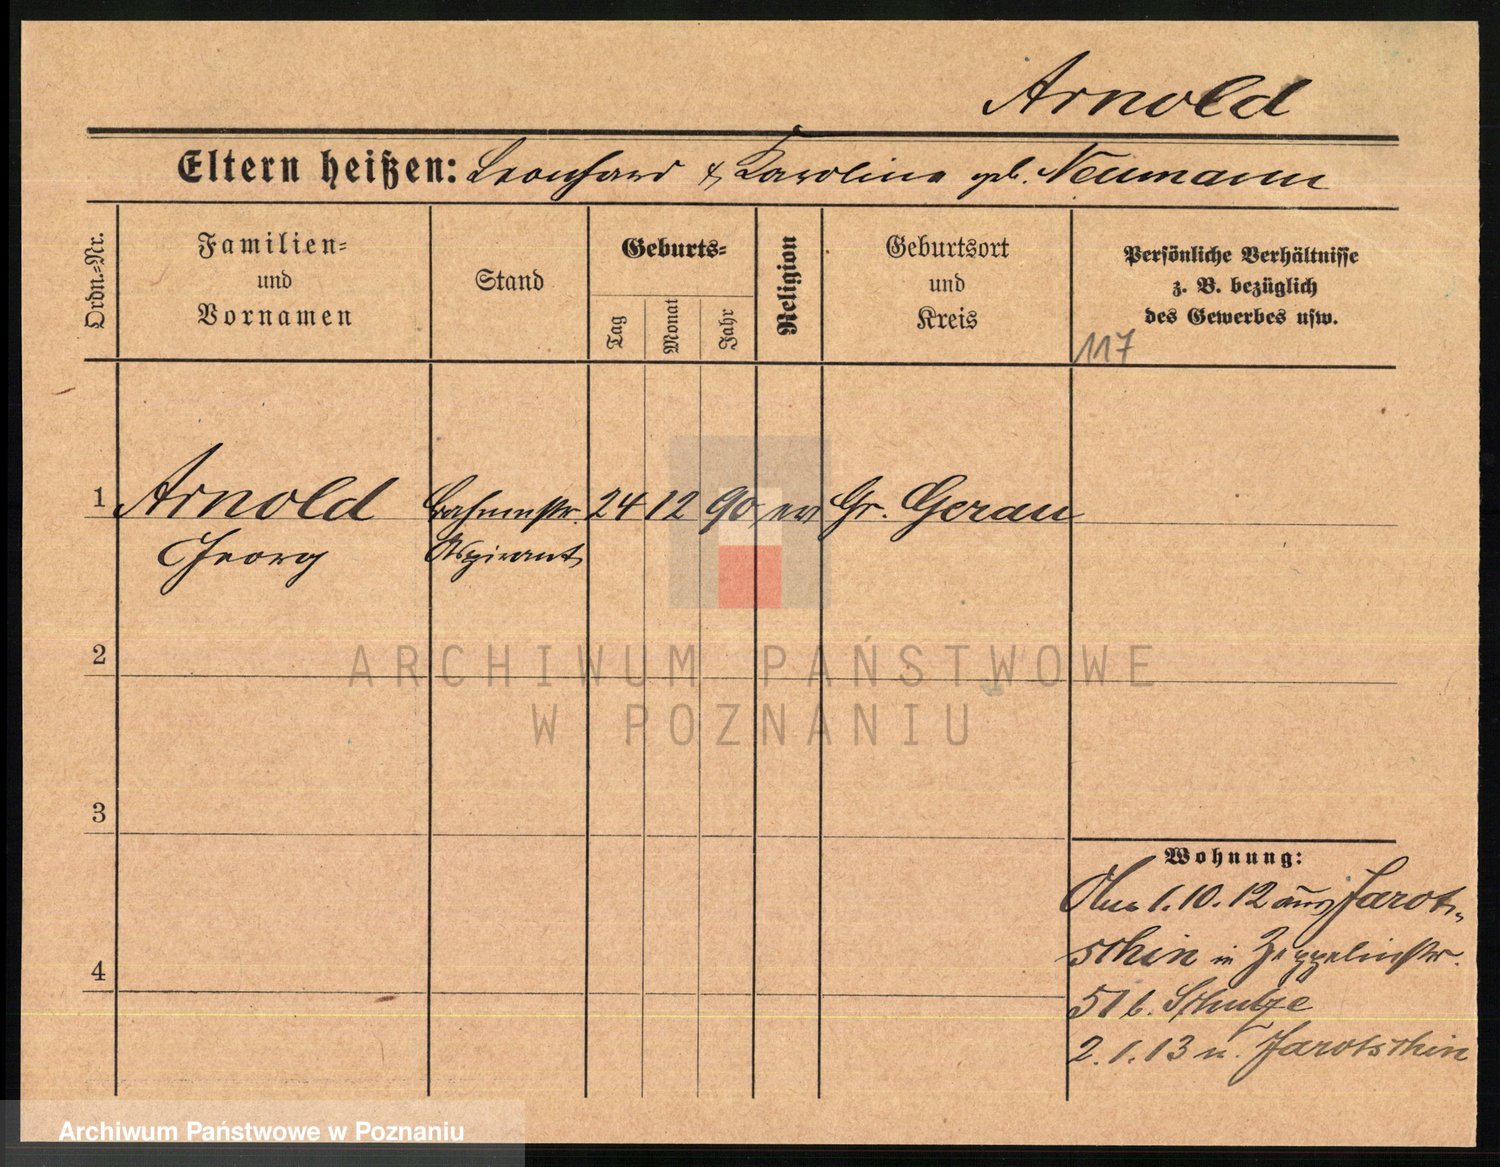 Arnold
Eltern heißen: Leonhard & Karoline geb. Neumann
Ordn.-Nr.
Familien-
und
Vornamen
Stand
Geburts-
Tag
Monat
Jahr
Religion
Geburtsort
und
Kreis
Persönliche Verhältnisse
z. B. bezüglich
des Gewerbes usw.
117
1 Arnold Bahnmstr. 24 12 90 ev Gr. Gerau
Georg Aspirant
2
ARCHIWUM PAŃSTWOWE
W POZNANIU
3
Wohnung:
1.10.12 aus Jarot-
schin in Zeppelinstr.
4
51 b. Schulze
2.1.13 n. Jarotschin
Archiwum Państwowe w Poznaniu